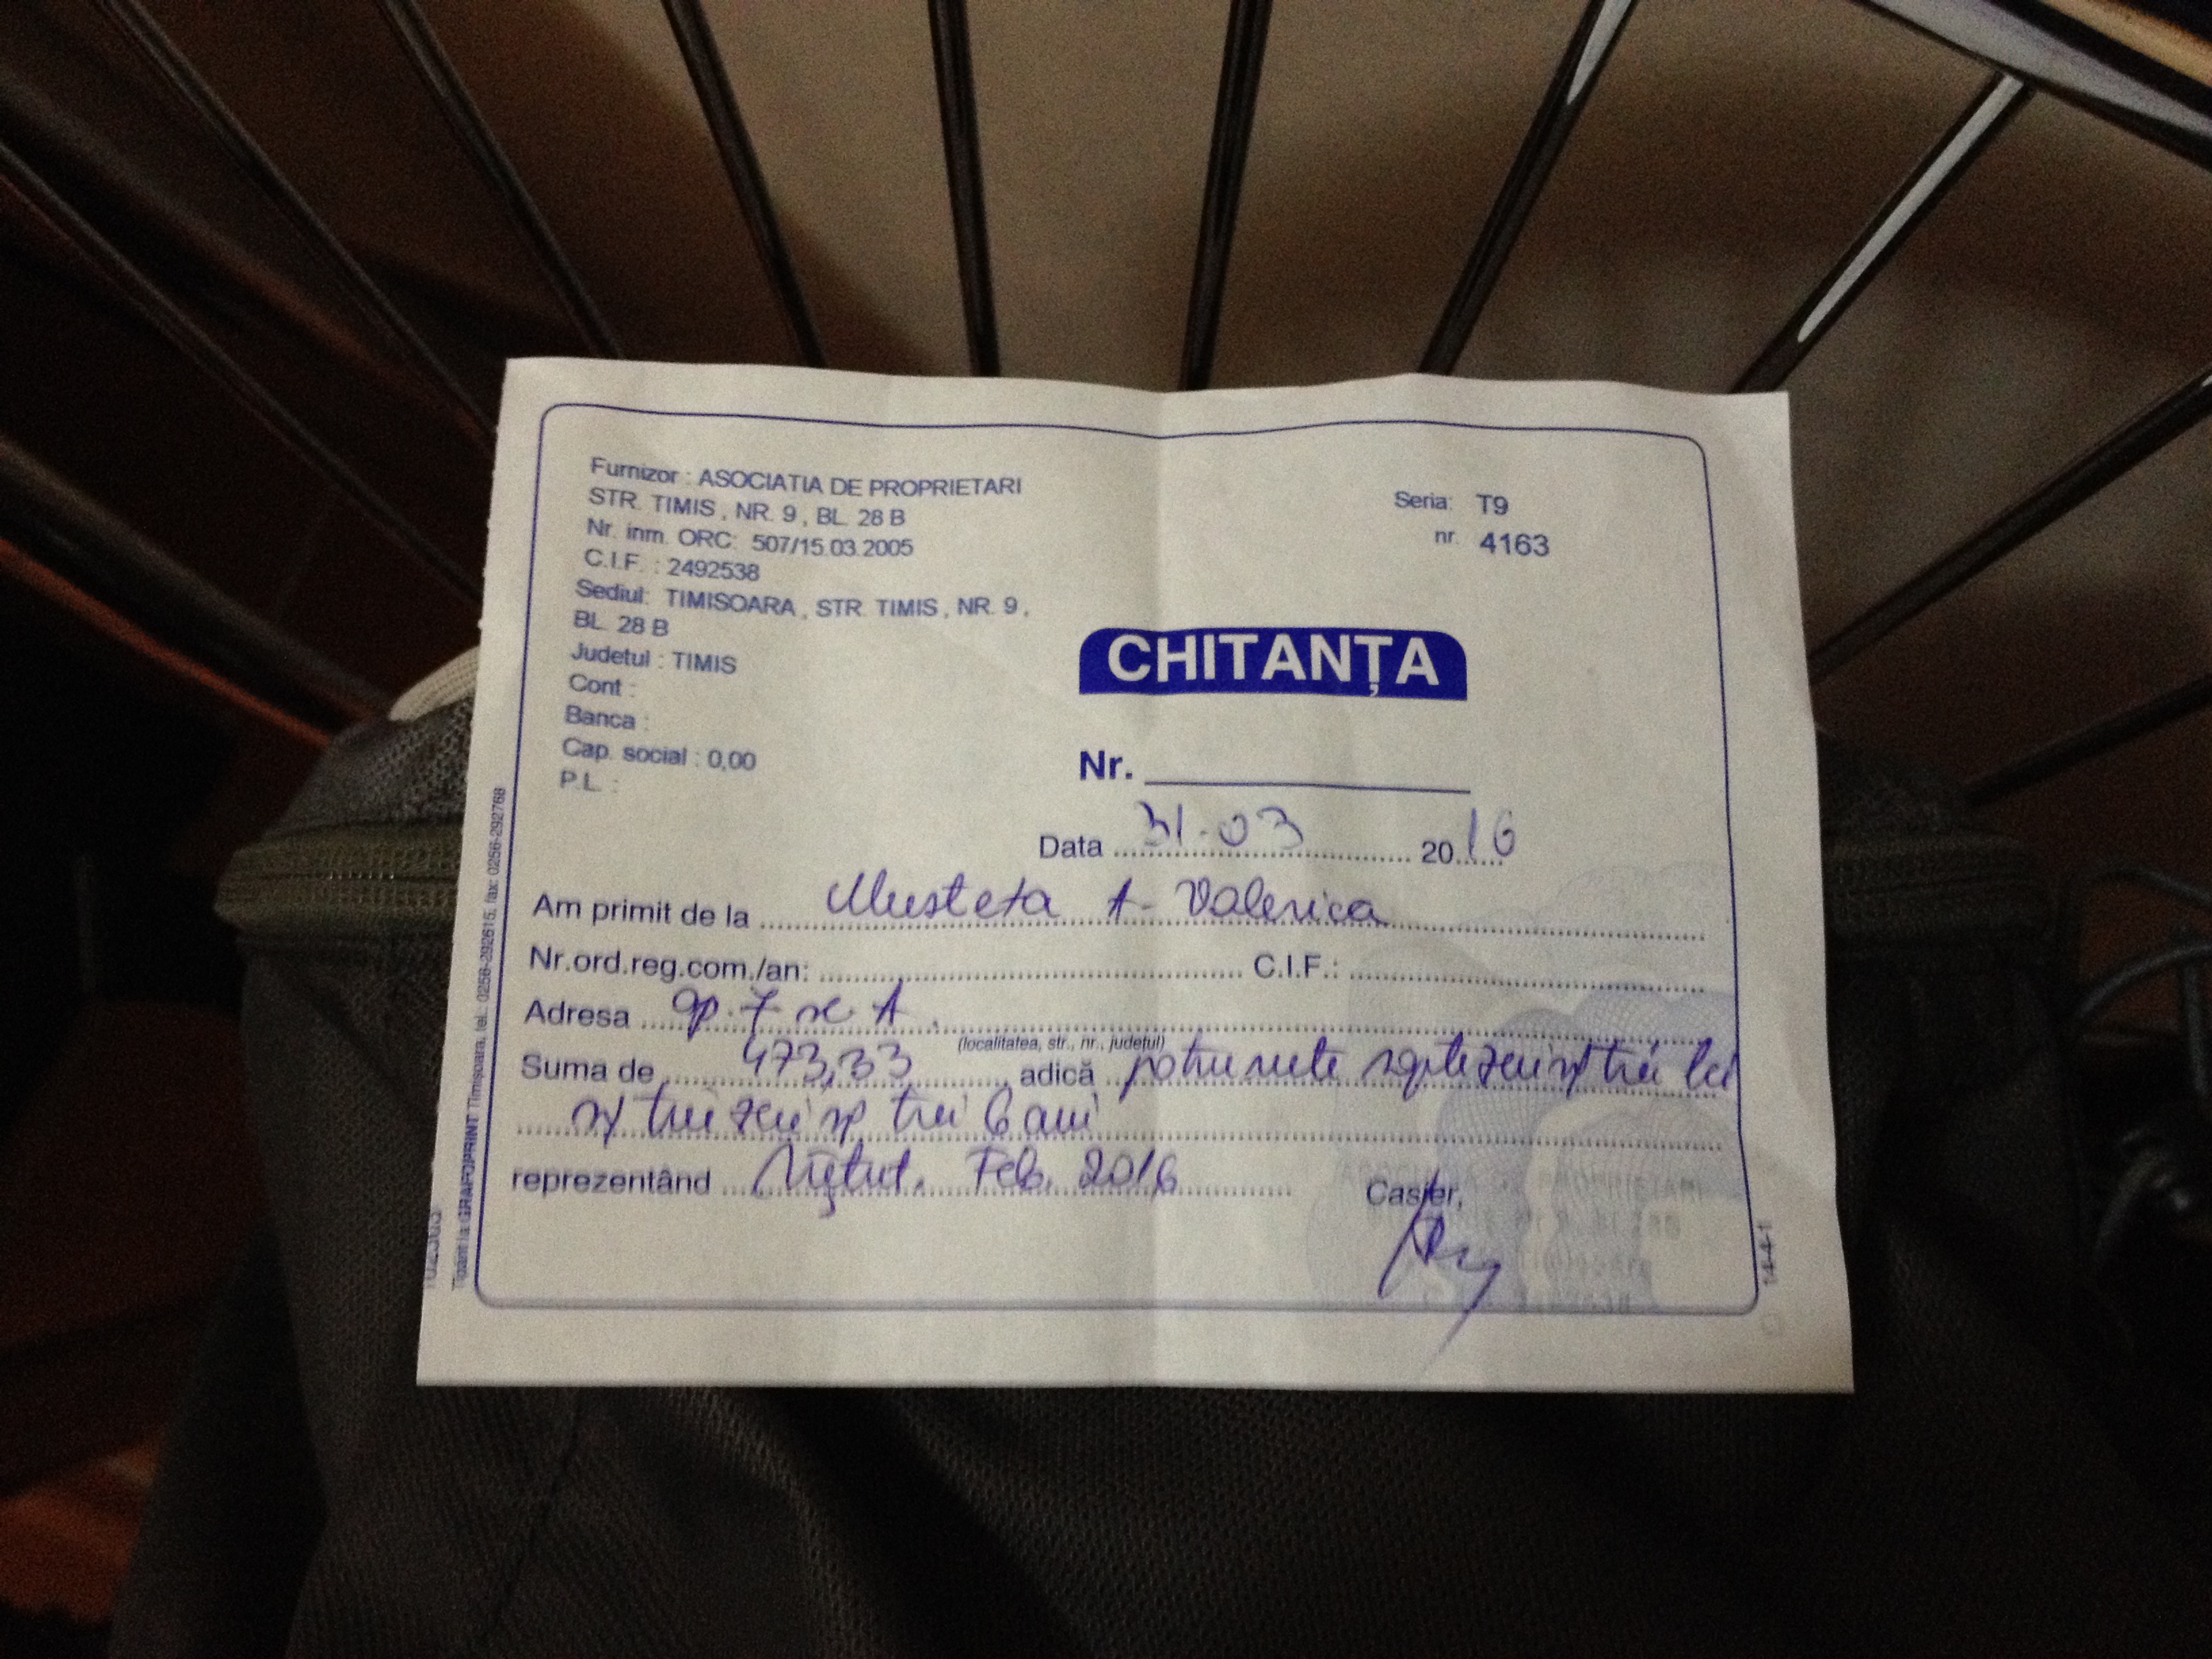 Furnizor : ASOCIATIA DE PROPRIETARI
STR. TIMIS , NR. 9 , BL. 28 B
Nr. inm. ORC: 507/15.03.2005
C.I.F. : 2492538
Sediul: TIMISOARA , STR. TIMIS , NR. 9 ,
BL. 28 B
Judetul : TIMIS
Cont :
Banca :
Cap. social : 0,00
P.L. :
Seria: T9
nr. 4163
CHITANȚA
Nr.
Data 31.03 2016
Am primit de la Musteta A- Valerica
Nr.ord.reg.com./an: C.I.F.:
Adresa ap. 7 sc A
(localitatea, str., nr., județul)
Suma de 473,33 adică patru sute șaptezeci și trei lei
și trei zeci și trei bani
reprezentând Feb. 2016
Casier,
Tipărit la GRAFOPRINT Timișoara, tel.: 0256-292615; fax: 0256-292768
14-4-1